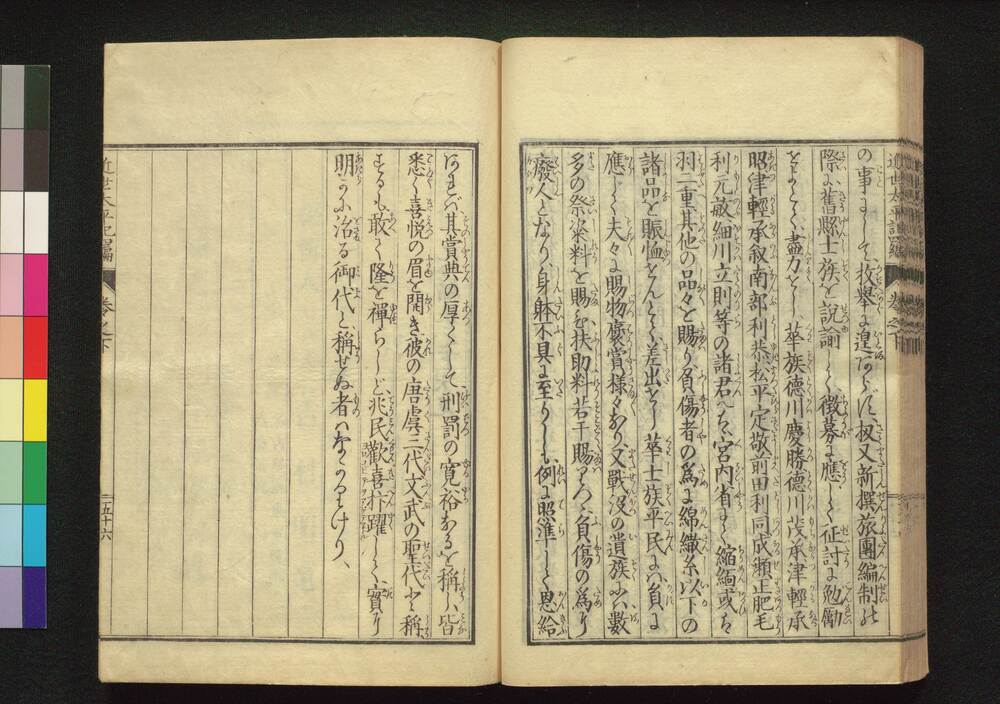 の事にして、枚擧に遑あらず、扨又新撰旅團編制の
際に舊縣士族を説諭し、徴募に應じて、征討に勉勵
をよく盡力をし、華族德川慶勝德川茂承津輕承
昭津輕承叙南部利恭松平定敬前田利同成瀬正肥毛
利元敏細川立則等の諸君へは、宮内省より縮緬或は
羽二重其他の品々を賜り負傷者の爲に綿繖糸以下の
諸品を賑恤せんとて差出せし、華士族平民には負に
應じて夫々に賜物褒賞様々あり又戰没の遺族には數
多の祭粢料を賜ふ扶助料若干賜はる、負傷の爲に
廢人となり身躰不具に至りしも、例に照準して恩給
あれば其賞典の厚くして、刑罰の寛裕なるを稱へ皆
悉く喜悦の眉を開き彼の唐虞三代文武の聖代と稱
するも敢て隆を禪らしと兆民歡喜抃躍して、實に
明かに治る御代と、稱せぬ者はなかりけり、
近世太平記編 巻之下
近世太平記編 巻之下
二五十六